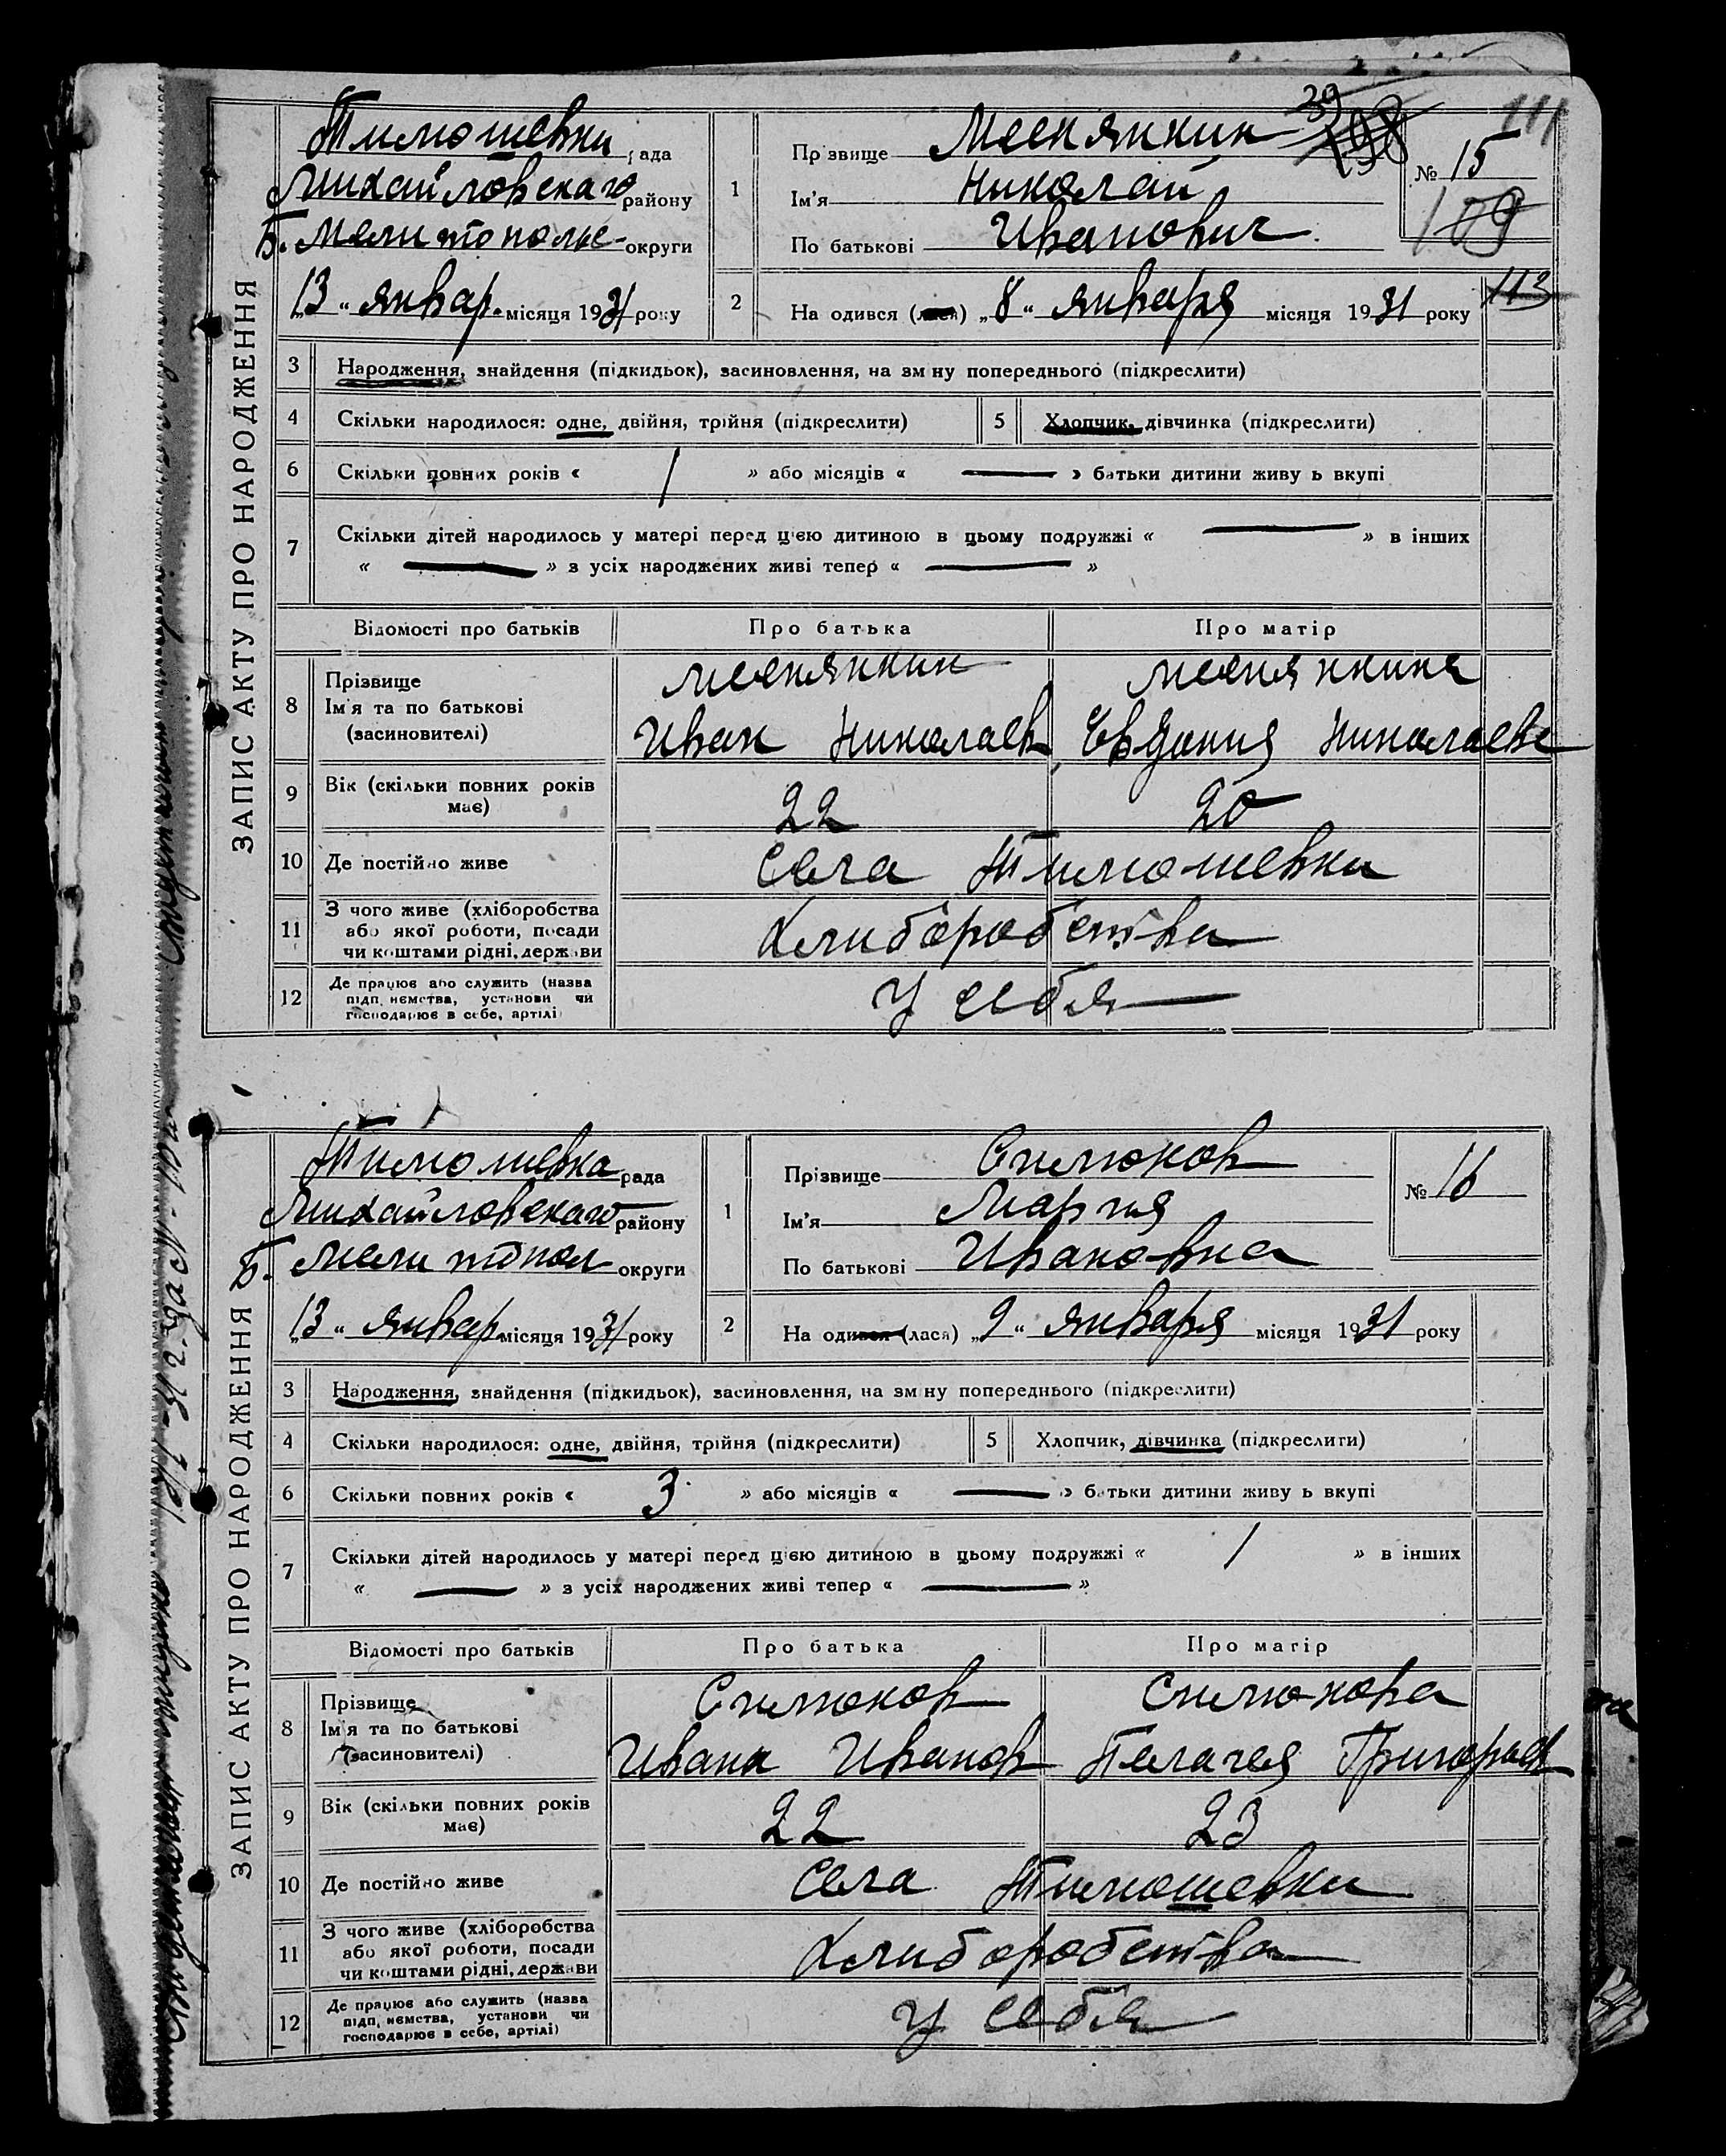 111
39
Тимошевки рада
Михайловскаго району
Б. Мелитопольс- округи
„13 “ январ. місяця 1931 року
1
Прізвище Меснянкин
Ім'я Николай
По батькові Иванович.
№ 15
109
113
2
На одився (лася) „ 8 “ января місяця 1931 року
ЗАПИС АКТУ ПРО НАРОДЖЕННЯ
3 Народження, знайдення (підкидьок), засиновлення, на зм ну попереднього (підкреслити)
4 Скільки народилося: одне, двійня, трійня (підкреслити) 5 Хлопчик, дівчинка (підкреслити)
6 Скільки повних років « 1 » або місяців « — » батьки дитини живу ь вкупі
7 Скільки дітей народилось у матері перед цією дитиною в цьому подружжі « — » в інших
« — » з усіх народжених живі тепер « — »
Відомості про батьків Про батька Про матір
8 Прізвище
Ім'я та по батькові
(засиновителі)
Меснянкин Меснянкина
Иван Николаев Евдокия Николаевс
9 Вік (скільки повних років
має)
22 20
10 Де постійно живе Села Тимошевки
11 З чого живе (хліборобства
або якої роботи, посади
чи коштами рідні, держави
Хлиборобства
12 Де працює або служить (назва
підп. немства, установи чи
господарює в себе, артілі)
У себя
Тимошевка рада
Михайловскаго району
Б. Мелитопол округи
„13 “ январ місяця 1931 року
1
Прізвище Силюков
Ім'я Мария
По батькові Ивановна
№ 16
2
На одився (лася) „ 9 “ января місяця 1931 року
ЗАПИС АКТУ ПРО НАРОДЖЕННЯ
3 Народження, знайдення (підкидьок), засиновлення, на зм ну попереднього (підкреслити)
4 Скільки народилося: одне, двійня, трійня (підкреслити) 5 Хлопчик, дівчинка (підкреслити)
6 Скільки повних років « 3 » або місяців « — » батьки дитини живу ь вкупі
7 Скільки дітей народилось у матері перед цією дитиною в цьому подружжі « 1 » в інших
« — » з усіх народжених живі тепер « — »
Відомості про батьків Про батька Про матір
8 Прізвище
Ім'я та по батькові
(засиновителі)
Силюков Силюкова
Ивана Иванов Пелагея Григорьев
9 Вік (скільки повних років
має)
22 23
10 Де постійно живе Села Тимошевки
11 З чого живе (хліборобства
або якої роботи, посади
чи коштами рідні, держави
Хлиборобства
12 Де працює або служить (назва
підп. немства, установи чи
господарює в себе, артілі)
У себя